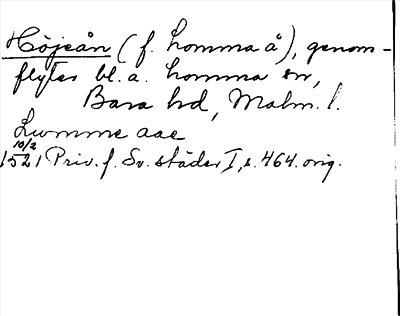 Höjeån (f. Lomma å), genom-
flyter bl.a. Lomma sn,
Bara hd, Malm. l.
Lwmme aae
10/2
1521 Priv. f. Sv. städer I, s. 464. orig.